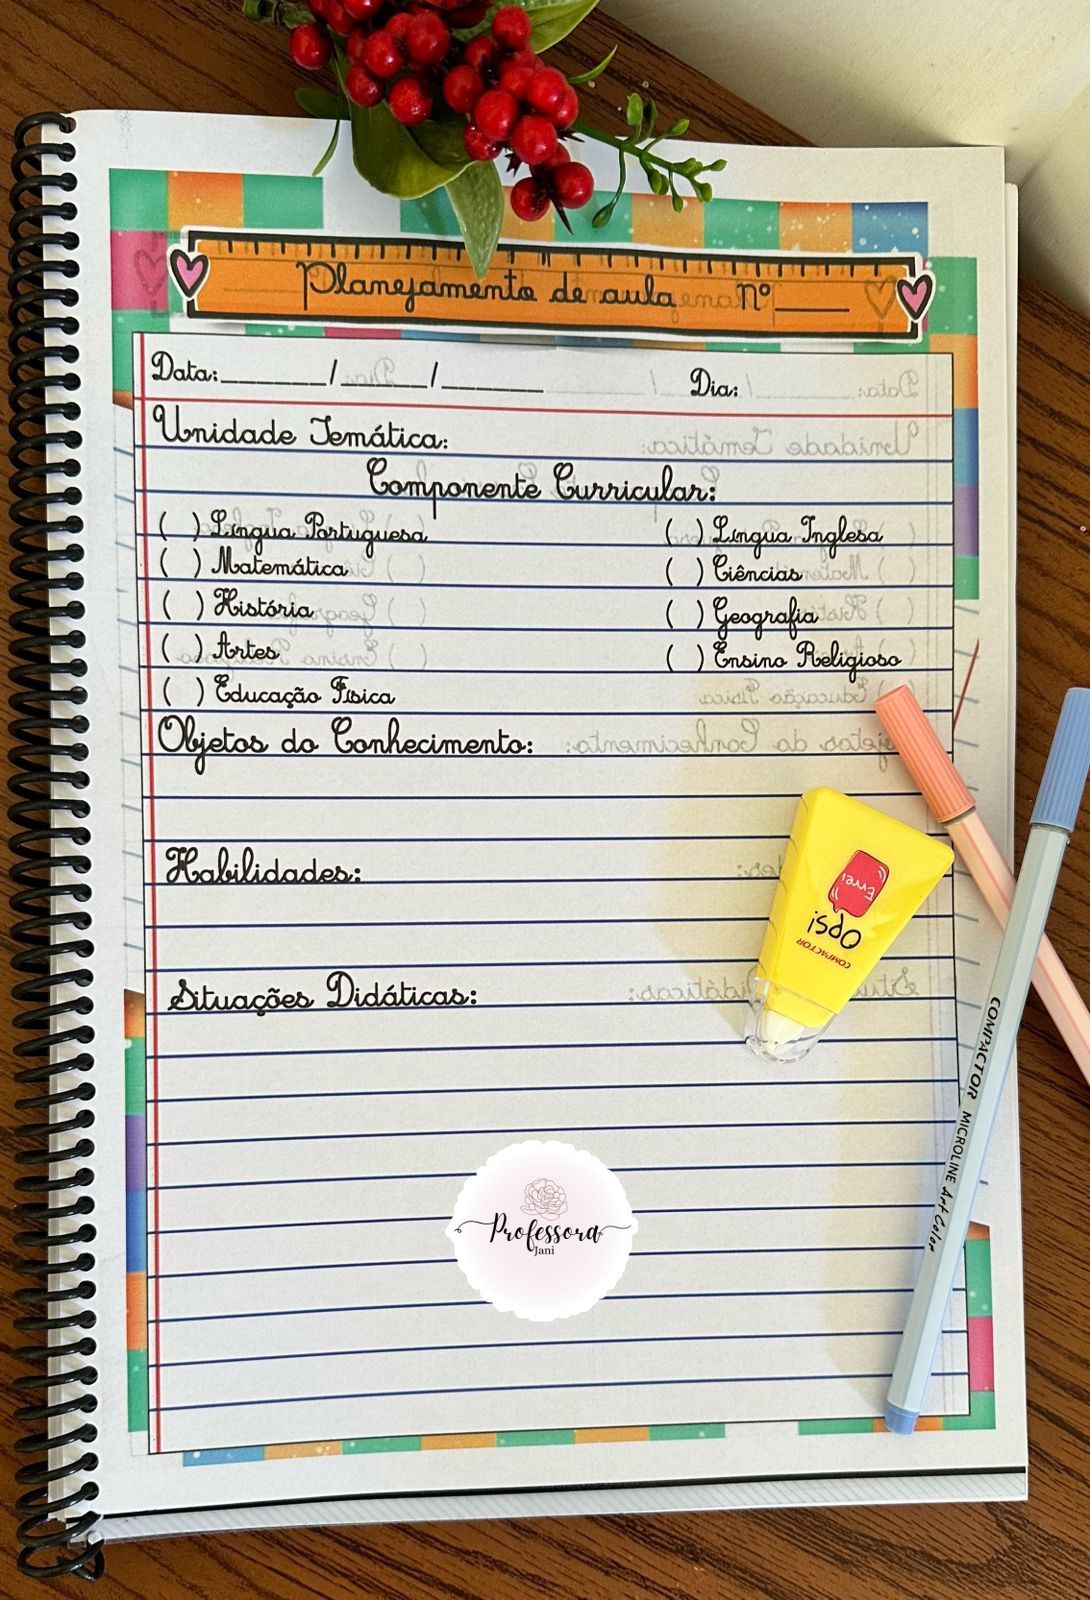 Planejamento de aula Nº____
Data:______/_____/______ Dia:
Unidade Temática:
Componente Curricular:
( ) Língua Portuguesa ( ) Língua Inglesa
( ) Matemática ( ) Ciências
( ) História ( ) Geografia
( ) Artes ( ) Ensino Religioso
( ) Educação Física
Objetos do Conhecimento:
Habilidades:
Situações Didáticas:
Errei
Ops!
COMPACTOR
COMPACTOR MICROLINE Art Color
Professora
Jani